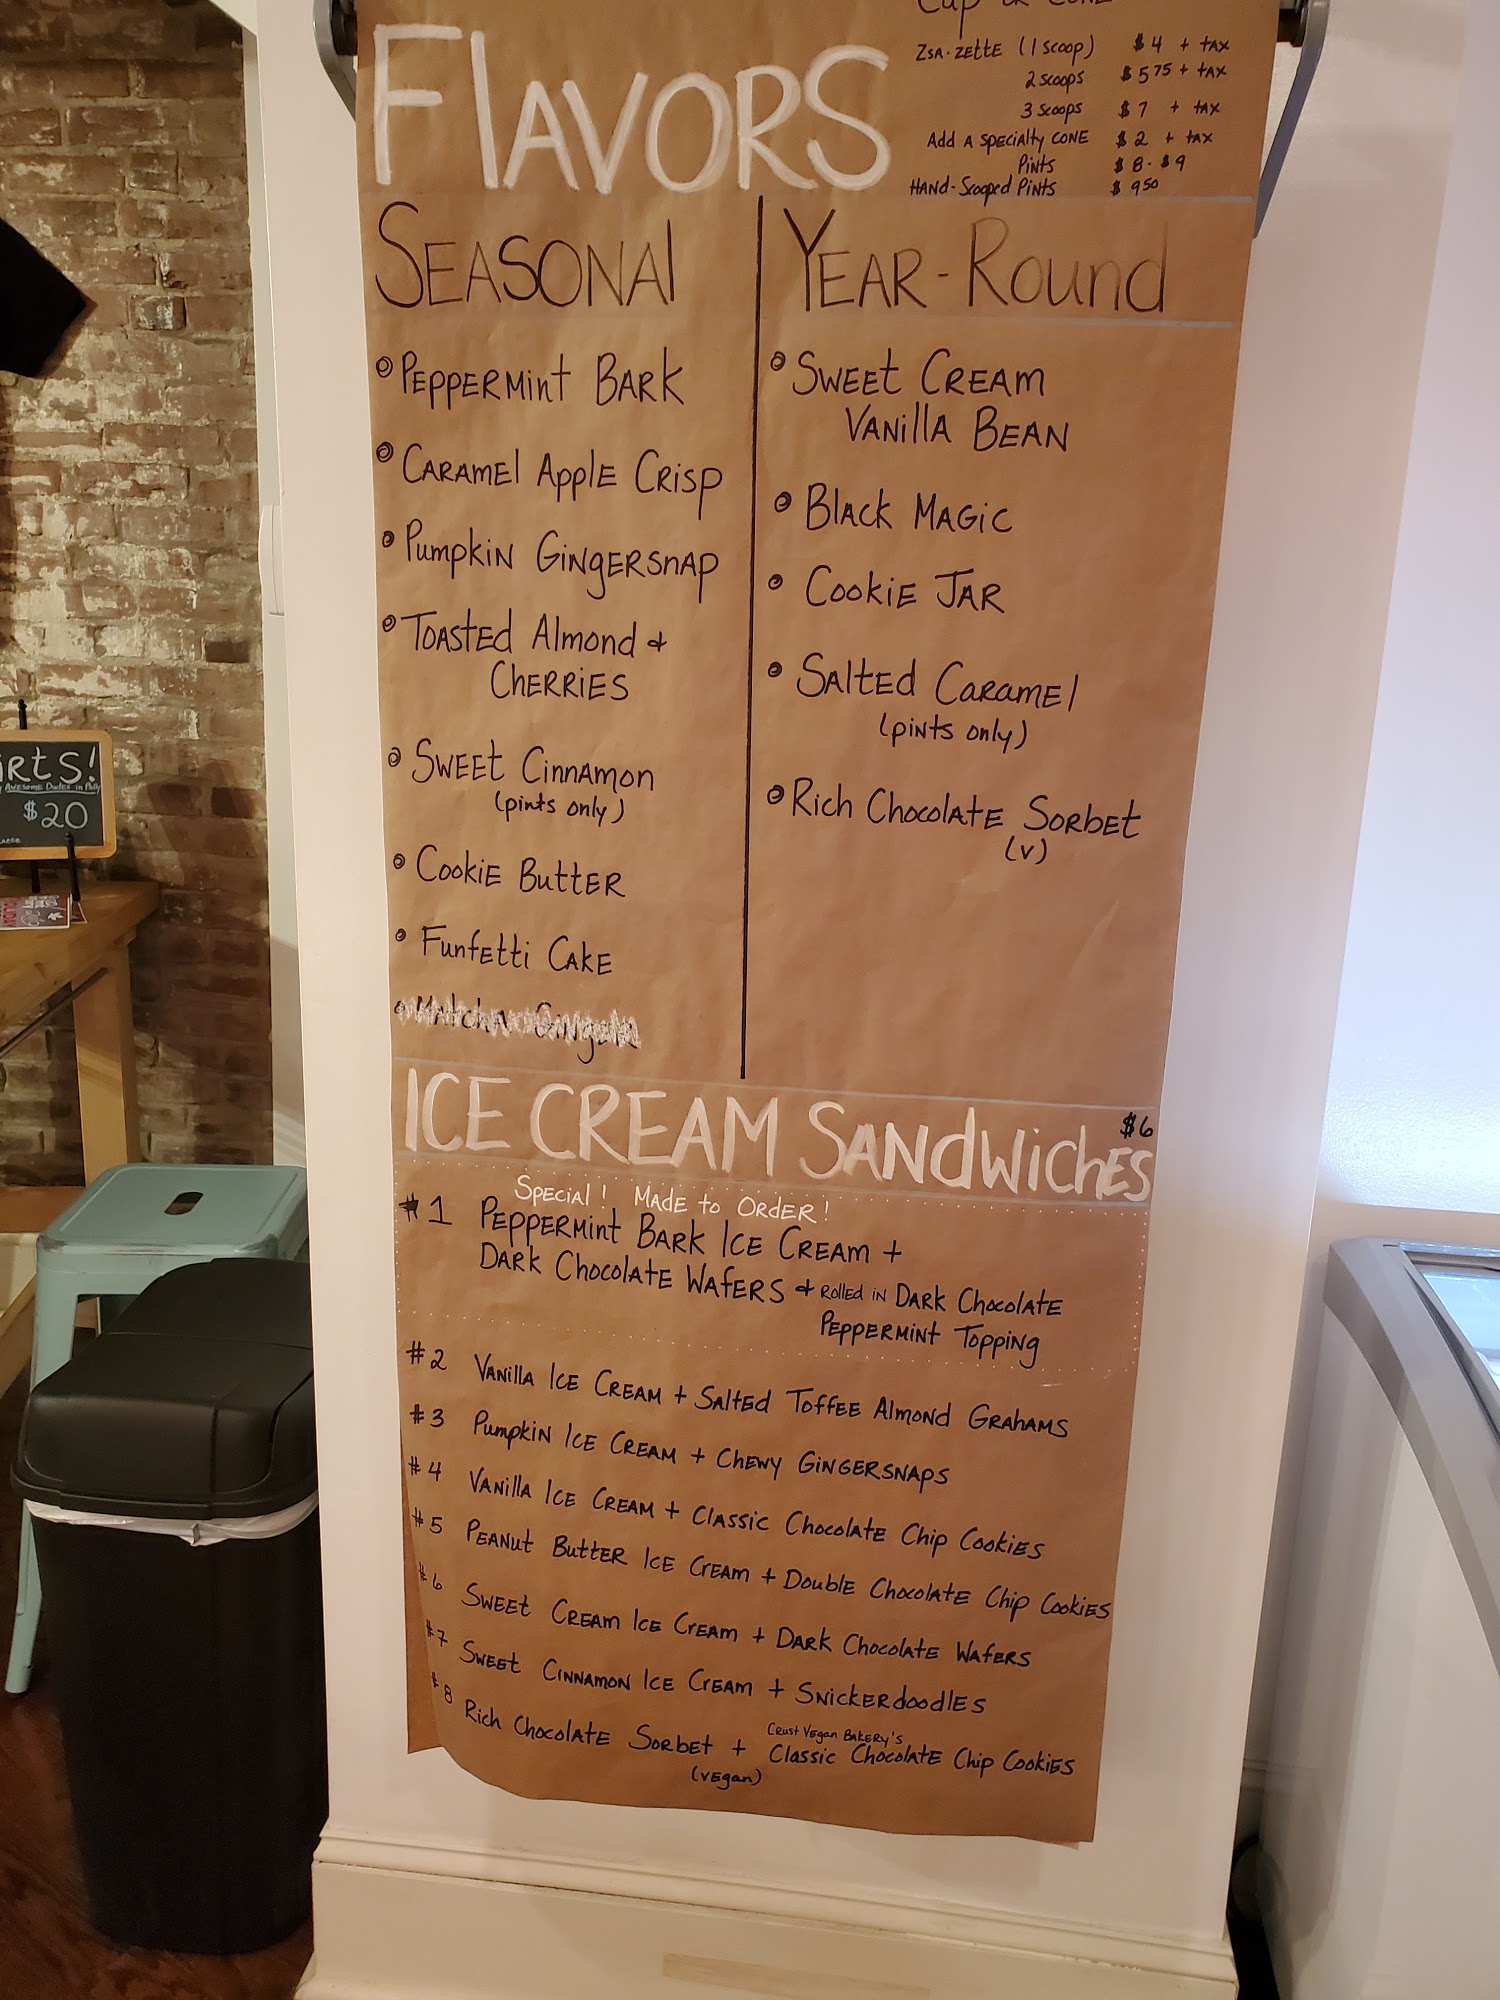 Cup or Cone
Flavors
Zsa-Zette (1 scoop) $4 + tax
2 scoops $5.75 + tax
3 scoops $7 + tax
Add a specialty cone $2 + tax
Pints $8 - $9
Hand-Scooped Pints $9.50
Seasonal
Peppermint Bark
Caramel Apple Crisp
Pumpkin Gingersnap
Toasted Almond +
Cherries
Sweet Cinnamon
(pints only)
Cookie Butter
Funfetti Cake
Matcha Ginger
Year-Round
Sweet Cream
Vanilla Bean
Black Magic
Cookie Jar
Salted Caramel
(pints only)
Rich Chocolate Sorbet
(v)
Ice Cream Sandwiches $6
Special! Made to Order!
#1 Peppermint Bark Ice Cream +
Dark Chocolate Wafers + Rolled in Dark Chocolate
Peppermint Topping
#2 Vanilla Ice Cream + Salted Toffee Almond Grahams
#3 Pumpkin Ice Cream + Chewy Gingersnaps
#4 Vanilla Ice Cream + Classic Chocolate Chip Cookies
#5 Peanut Butter Ice Cream + Double Chocolate Chip Cookies
#6 Sweet Cream Ice Cream + Dark Chocolate Wafers
#7 Sweet Cinnamon Ice Cream + Snickerdoodles
#8 Rich Chocolate Sorbet + Crust Vegan Bakery's
Classic Chocolate Chip Cookies
(vegan)
irts!
Awesome Dudes in Philly
$20